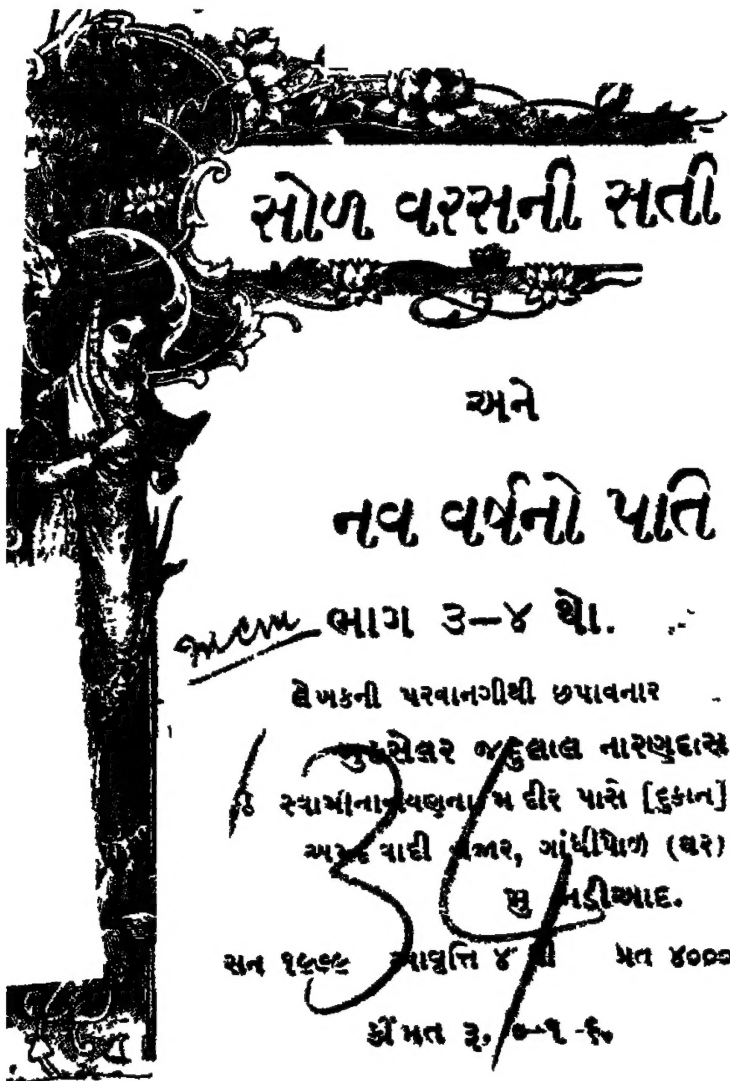 સોળ વરસની સતી
અને
નવ વર્ષનો પતિ
ભાગ ૩—૪ થો.
લેખકની પરવાનગીથી છપાવનાર
બુકસેલર જદુલાલ નારણદાસ
ઠે સ્વામીનારાયણના મંદીર પાસે [દુકાન]
અમદાવાદી બજાર, ગાંધીપોળ (ઘર)
મુ નડીઆદ.
સન આવૃત્તિ ૪ થી પ્રત ૪૦૦૦
કીંમત રૂ. ૦-૧-૬.